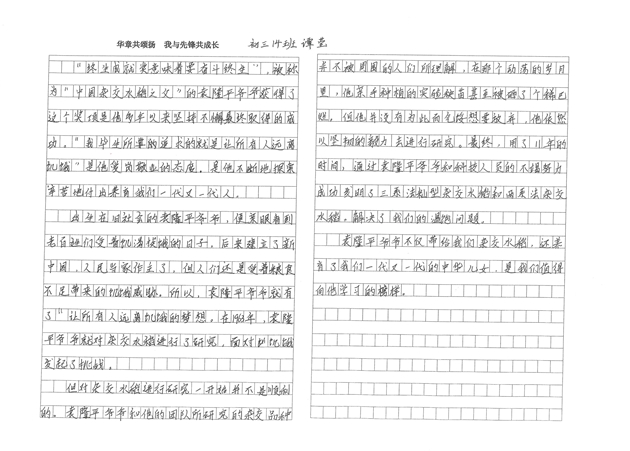 华章共颂扬 我与先锋共成长 初三14班 谭莹
“终生成就奖意味着要奋斗终生”，被称
为“中国杂交水稻之父”的袁隆平爷爷获得了
这个奖项是他有半以来坚持不懈最终取得的成
功。“我毕生所要的追求的就是让所有人远离
饥饿”是他爱岗敬业的态度。是他不断地探索
辛苦地付出养育我们一代又一代人。
出生在旧社会的袁隆平爷爷，便亲眼看到
老百姓们受着饥渴续饿的日子。后来建立了新
中国，人民当家作主了。但人们还是受着粮食
不足带来的饥饿威胁。所以，袁隆平爷爷就有
了“让所有人远离饥饿的梦想。在1964年，袁隆
平爷爷就对杂交水稻进行了研究，面对
发起了挑战。
但对杂交水稻进行研究一开始并不是顺利
的。袁隆平爷爷和他的团队所研究的杂交品种
并不被周围的人们所理解，在那个动荡的岁月
里，他亲手种植的实验秧苗甚至被砸了个稀巴
烂。但他并没有为此而气接想要放弃，他依然
以坚韧的毅力去进行研究。最终，用了11年的
时间，通过袁隆平爷爷和科技人员的不锡努力
成功发明了三系法籼型杂交水稻和两系法杂交
水稻。解决了我们的温饱问题。
袁隆平爷爷不仅带给我们杂交水稻，还养
育了我们一代又一代的中华儿女，是我们值得
向他学习的榜样。